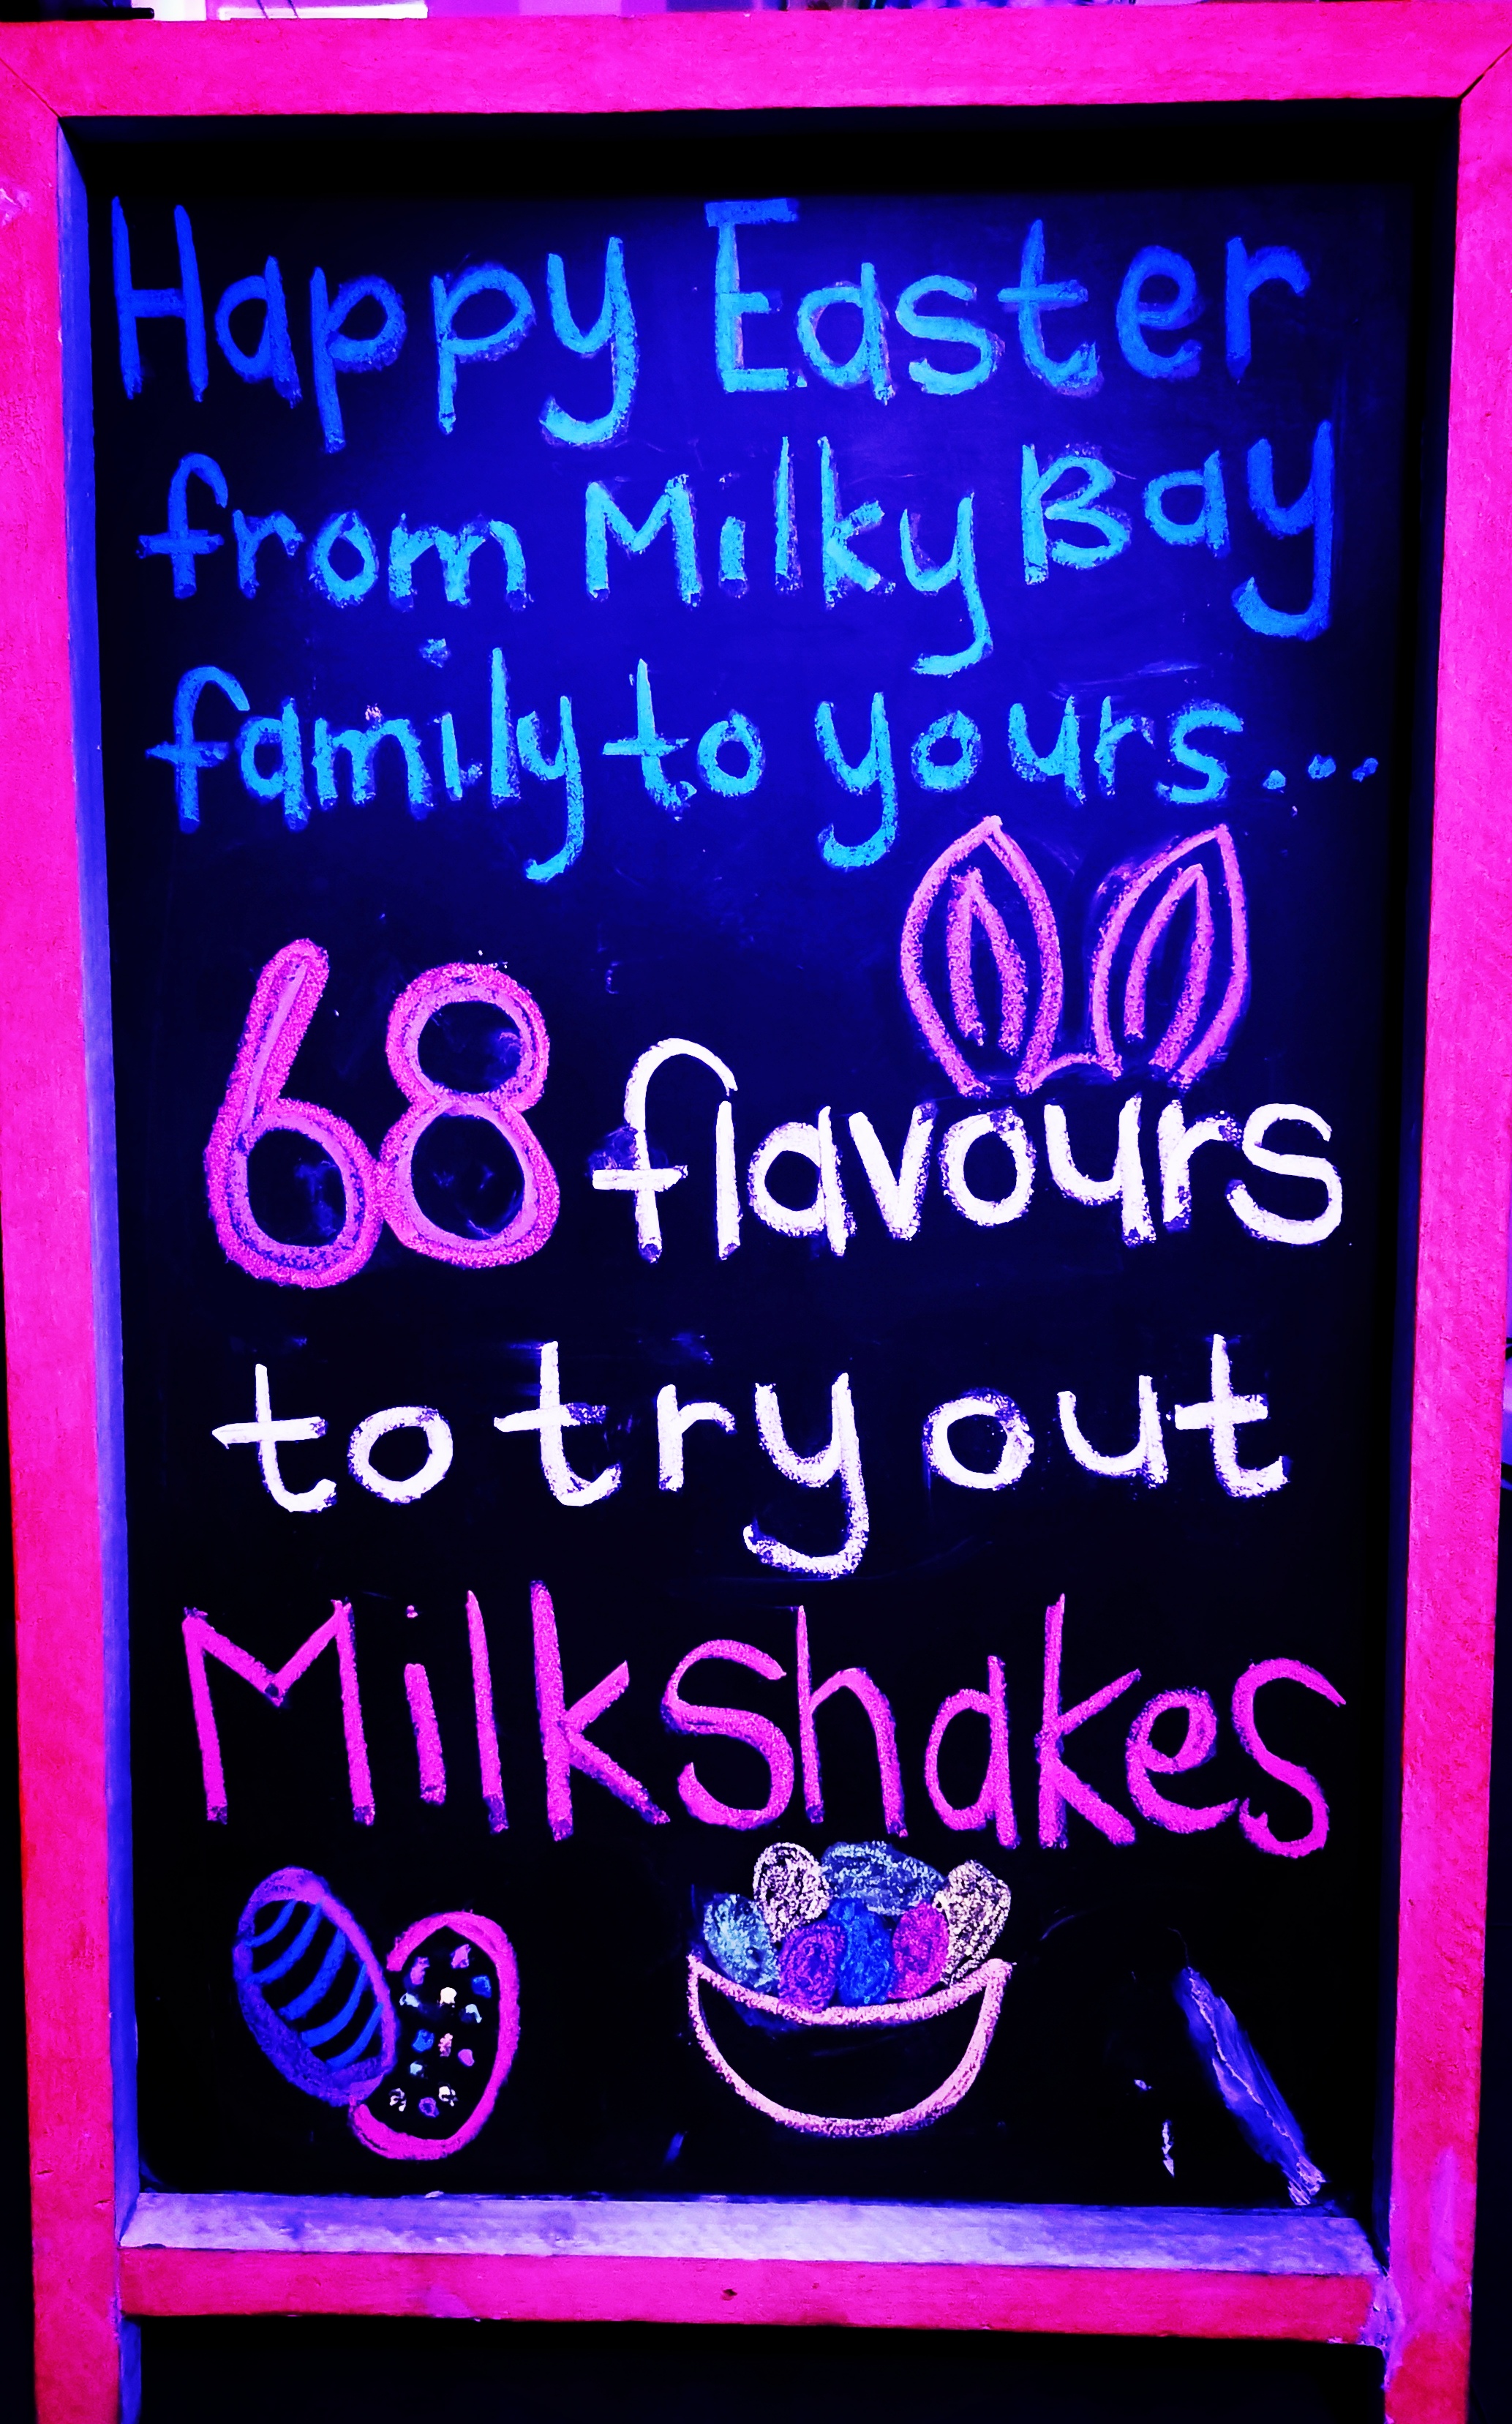 Happy Easter
from Milky Bay
family to yours...
68 flavours
to try out
Milkshakes